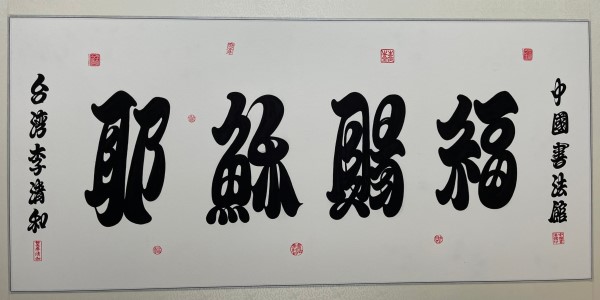 台湾李濟和
耶穌賜福
中國書法館